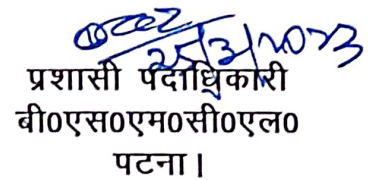 प्रशासी पदाधिकारी
बी०एस०एम०सी०एल०
पटना।